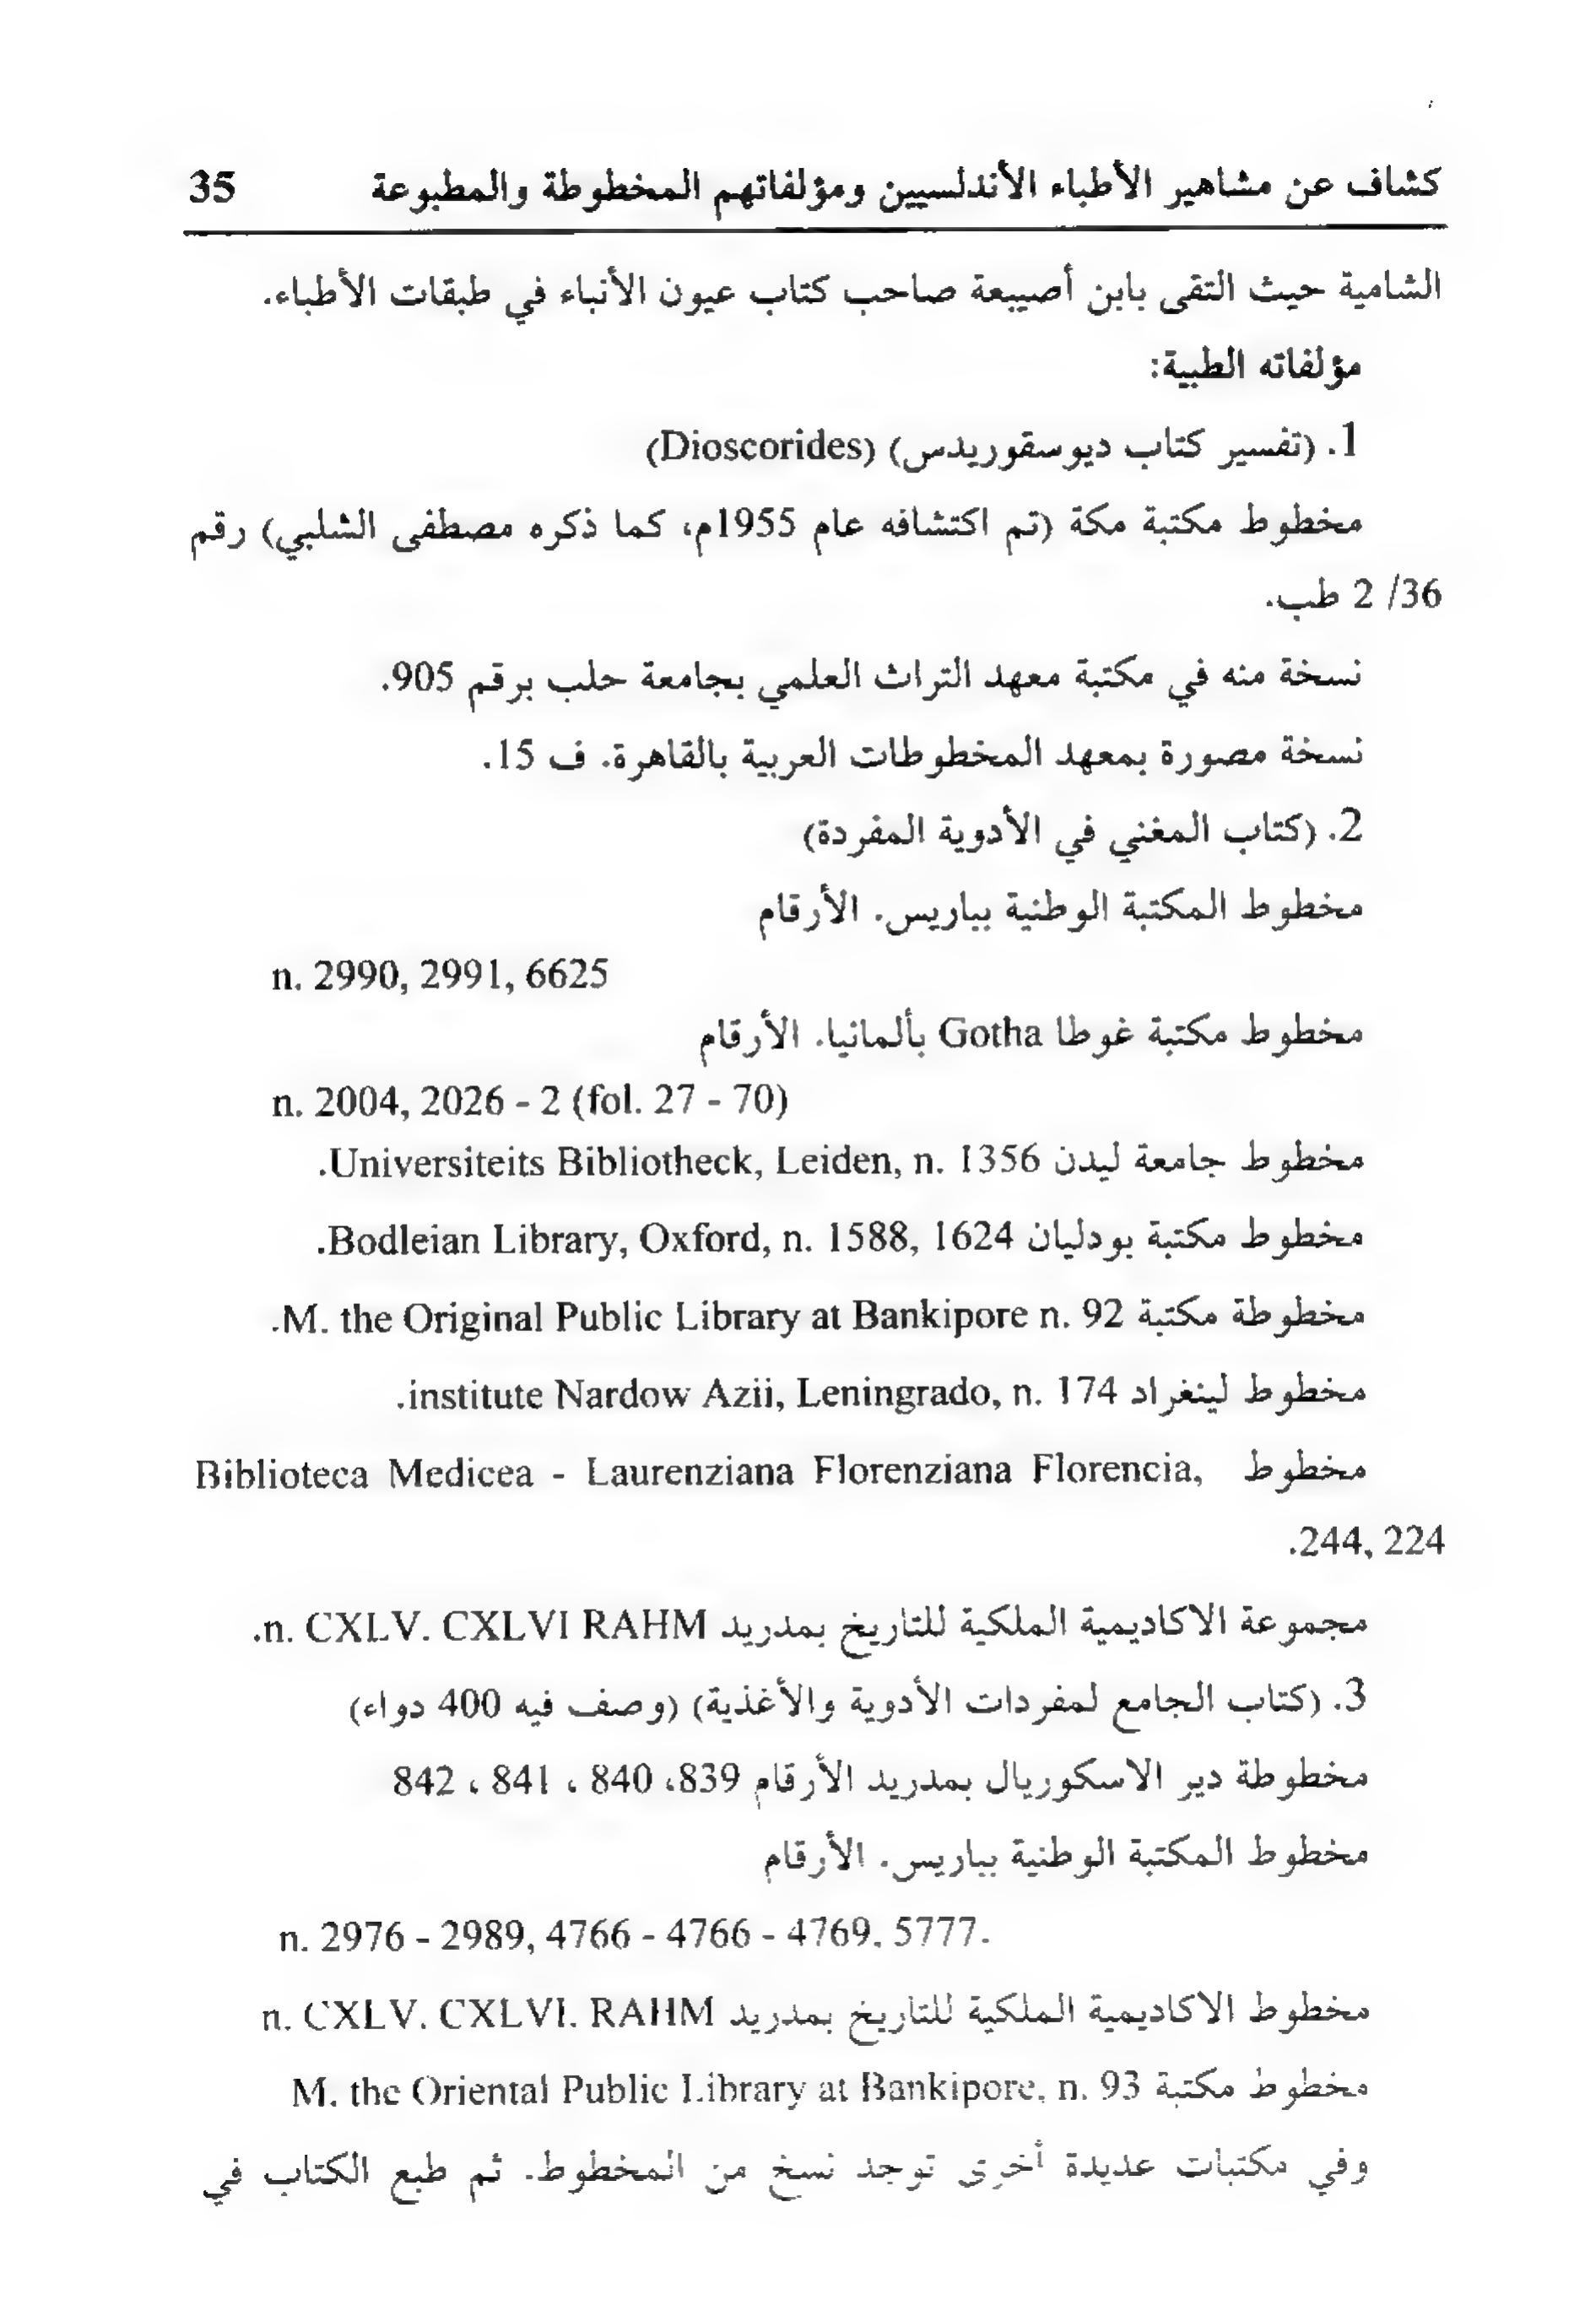 كشاف عن مشاهير الأطباء الأندلسيين ومؤلفاتهم المخطوطة والمطبوعة 35
الشامية حيث التقى بابن أصيبعة صاحب كتاب عيون الأنباء في طبقات الأطباء.
مؤلفاته الطبية:
1. (تفسير كتاب ديوسقوريدس) (Dioscorides)
مخطوط مكتبة مكة (تم اكتشافه عام 1955م، كما ذكره مصطفى الشلبي) رقم
36/ 2 طب.
نسخة منه في مكتبة معهد التراث العلمي بجامعة حلب برقم 905.
نسخة مصورة بمعهد المخطوطات العربية بالقاهرة. ف 15.
2. (كتاب المغني في الأدوية المفردة)
مخطوط المكتبة الوطنية بباريس. الأرقام
n. 2990, 2991, 6625
مخطوط مكتبة غوطا Gotha بألمانيا. الأرقام
n. 2004, 2026 - 2 (fol. 27 - 70)
مخطوط جامعة ليدن Universiteits Bibliotheck, Leiden, n. 1356.
مخطوط مكتبة بودليان Bodleian Library, Oxford, n. 1588, 1624.
مخطوطة مكتبة M. the Original Public Library at Bankipore n. 92.
مخطوط لينغراد institute Nardow Azii, Leningrado, n. 174.
مخطوط Biblioteca Medicea - Laurenziana Florenziana Florencia,
244, 224.
مجموعة الاكاديمية الملكية للتاريخ بمدريد n. CXLV. CXLVI RAHM.
3. (كتاب الجامع لمفردات الأدوية والأغذية) (وصف فيه 400 دواء)
مخطوطة دير الاسكوريال بمدريد الأرقام 839، 840 ، 841 ، 842
مخطوط المكتبة الوطنية بباريس. الأرقام
n. 2976 - 2989, 4766 - 4766 - 4769. 5777.
مخطوط الاكاديمية الملكية للتاريخ بمدريد n. CXLV. CXLVI. RAHM
مخطوط مكتبة M. the Oriental Public Library at Bankipore, n. 93
وفي مكتبات عديدة أخرى توجد نسخ من المخطوط. ثم طبع الكتاب في